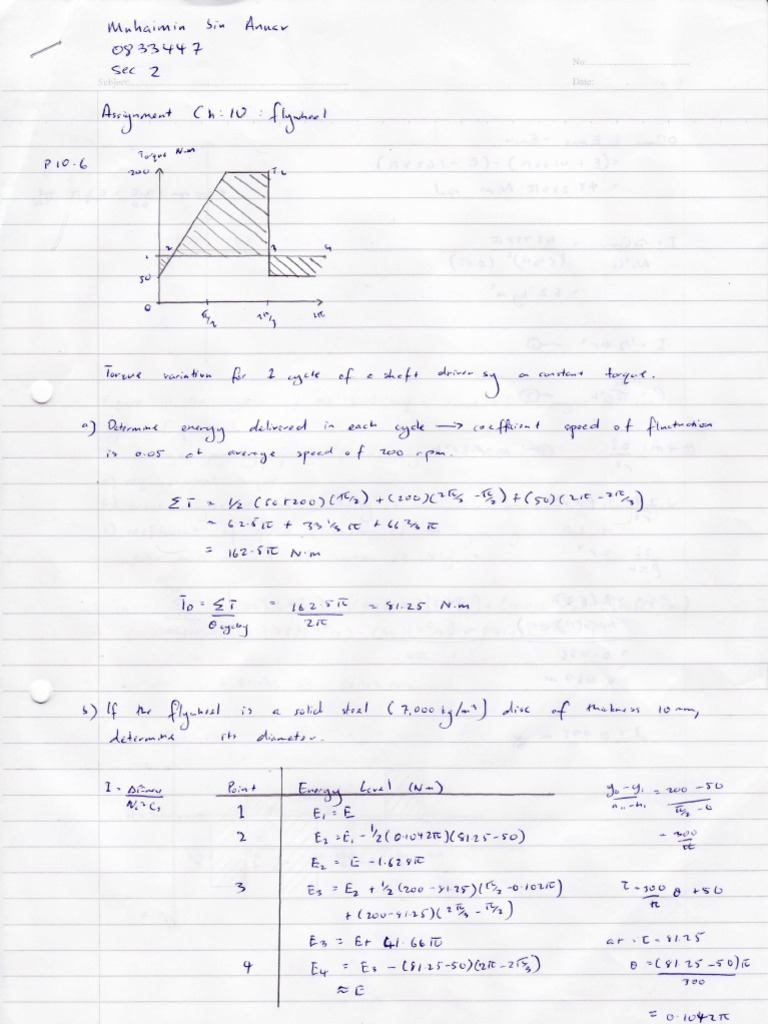 Muhaimin bin Anuar
0833447
Sec 2
No:
Subject:
Date:
Assignment Ch:10 : flywheel
P10.6
Torque N.m
200
TL
2
3
4
1
50
0
π/2
2π/3
2π
Torque variation for 1 cycle of a shaft driven by a constant torque.
a) Determine energy delivered in each cycle → coefficient speed of fluctuation
is 0.05 at average speed of 200 rpm.
ΣT = 1/2 (50+200)(π/2) + (200)(2π/3 - π/2) + (50)(2π - 2π/3)
= 62.5π + 33 1/3 π + 66 2/3 π
= 162.5π N.m
To = ΣT / θ cycle = 162.5π / 2π = 81.25 N.m
b) If the flywheel is a solid steel (7,000 kg/m³) disc of thickness 10 mm,
determine its diameter.
Point Energy Level (Nm)
1 E₁ = E
2 E₂ = E₁ - 1/2 (0.1042π)(81.25-50)
E₂ = E - 1.628π
3 E₃ = E₂ + 1/2 (200-81.25)(π/2 - 0.102π)
+ (200-81.25)(2π/3 - π/2)
E₃ = E + 41.66π
4 E₄ = E₃ - (81.25-50)(2π - 2π/3)
≈ E
= 200 - 50 / π/2 - 0
= 300 / π
τ = 300/π θ + 50
at τ = 81.25
θ = (81.25 - 50)π / 300
= 0.1042π